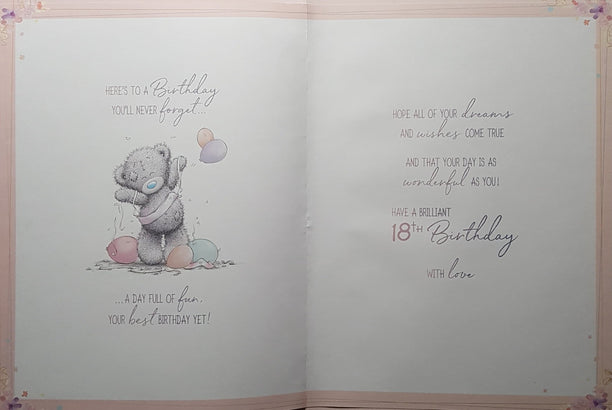 HERE'S TO A Birthday
YOU'LL NEVER forget...
...A DAY FULL OF fun,
YOUR best BIRTHDAY YET!
HOPE ALL OF YOUR dreams
AND wishes COME TRUE
AND THAT YOUR DAY IS AS
wonderful AS YOU!
HAVE A BRILLIANT
18TH Birthday
WITH love